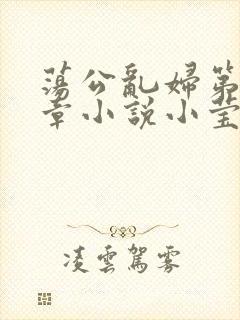 蕩公亂婦第
章小說小莹
凌雲駕雾